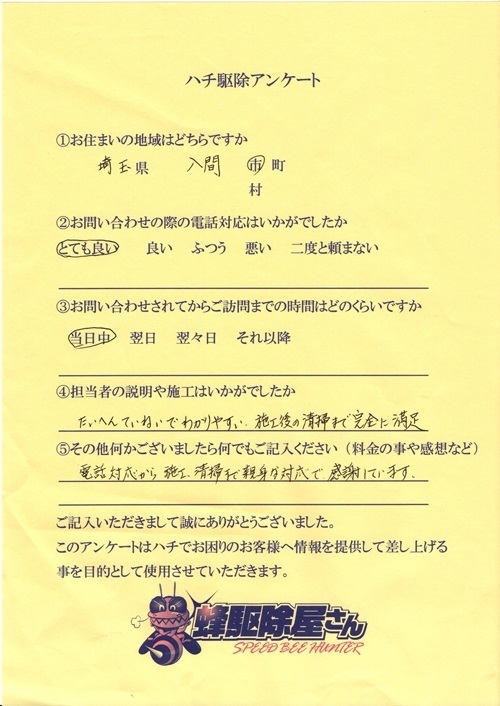 ハチ駆除アンケート
①お住まいの地域はどちらですか
埼玉県 入間 市 町
村
②お問い合わせの際の電話対応はいかがでしたか
とても良い 良い ふつう 悪い 二度と頼まない
③お問い合わせされてからご訪問までの時間はどのくらいですか
当日中 翌日 翌々日 それ以降
④担当者の説明や施工はいかがでしたか
たいへんていねいでわかりやすい。施工後の清掃まで完全に満足
⑤その他何かございましたら何でもご記入ください（料金の事や感想など）
電話対応から施工、清掃まで親身な対応で感謝しています。
ご記入いただきまして誠にありがとうございました。
このアンケートはハチでお困りのお客様へ情報を提供して差し上げる
事を目的として使用させていただきます。
蜂駆除屋さん
SPEED BEE HUNTER